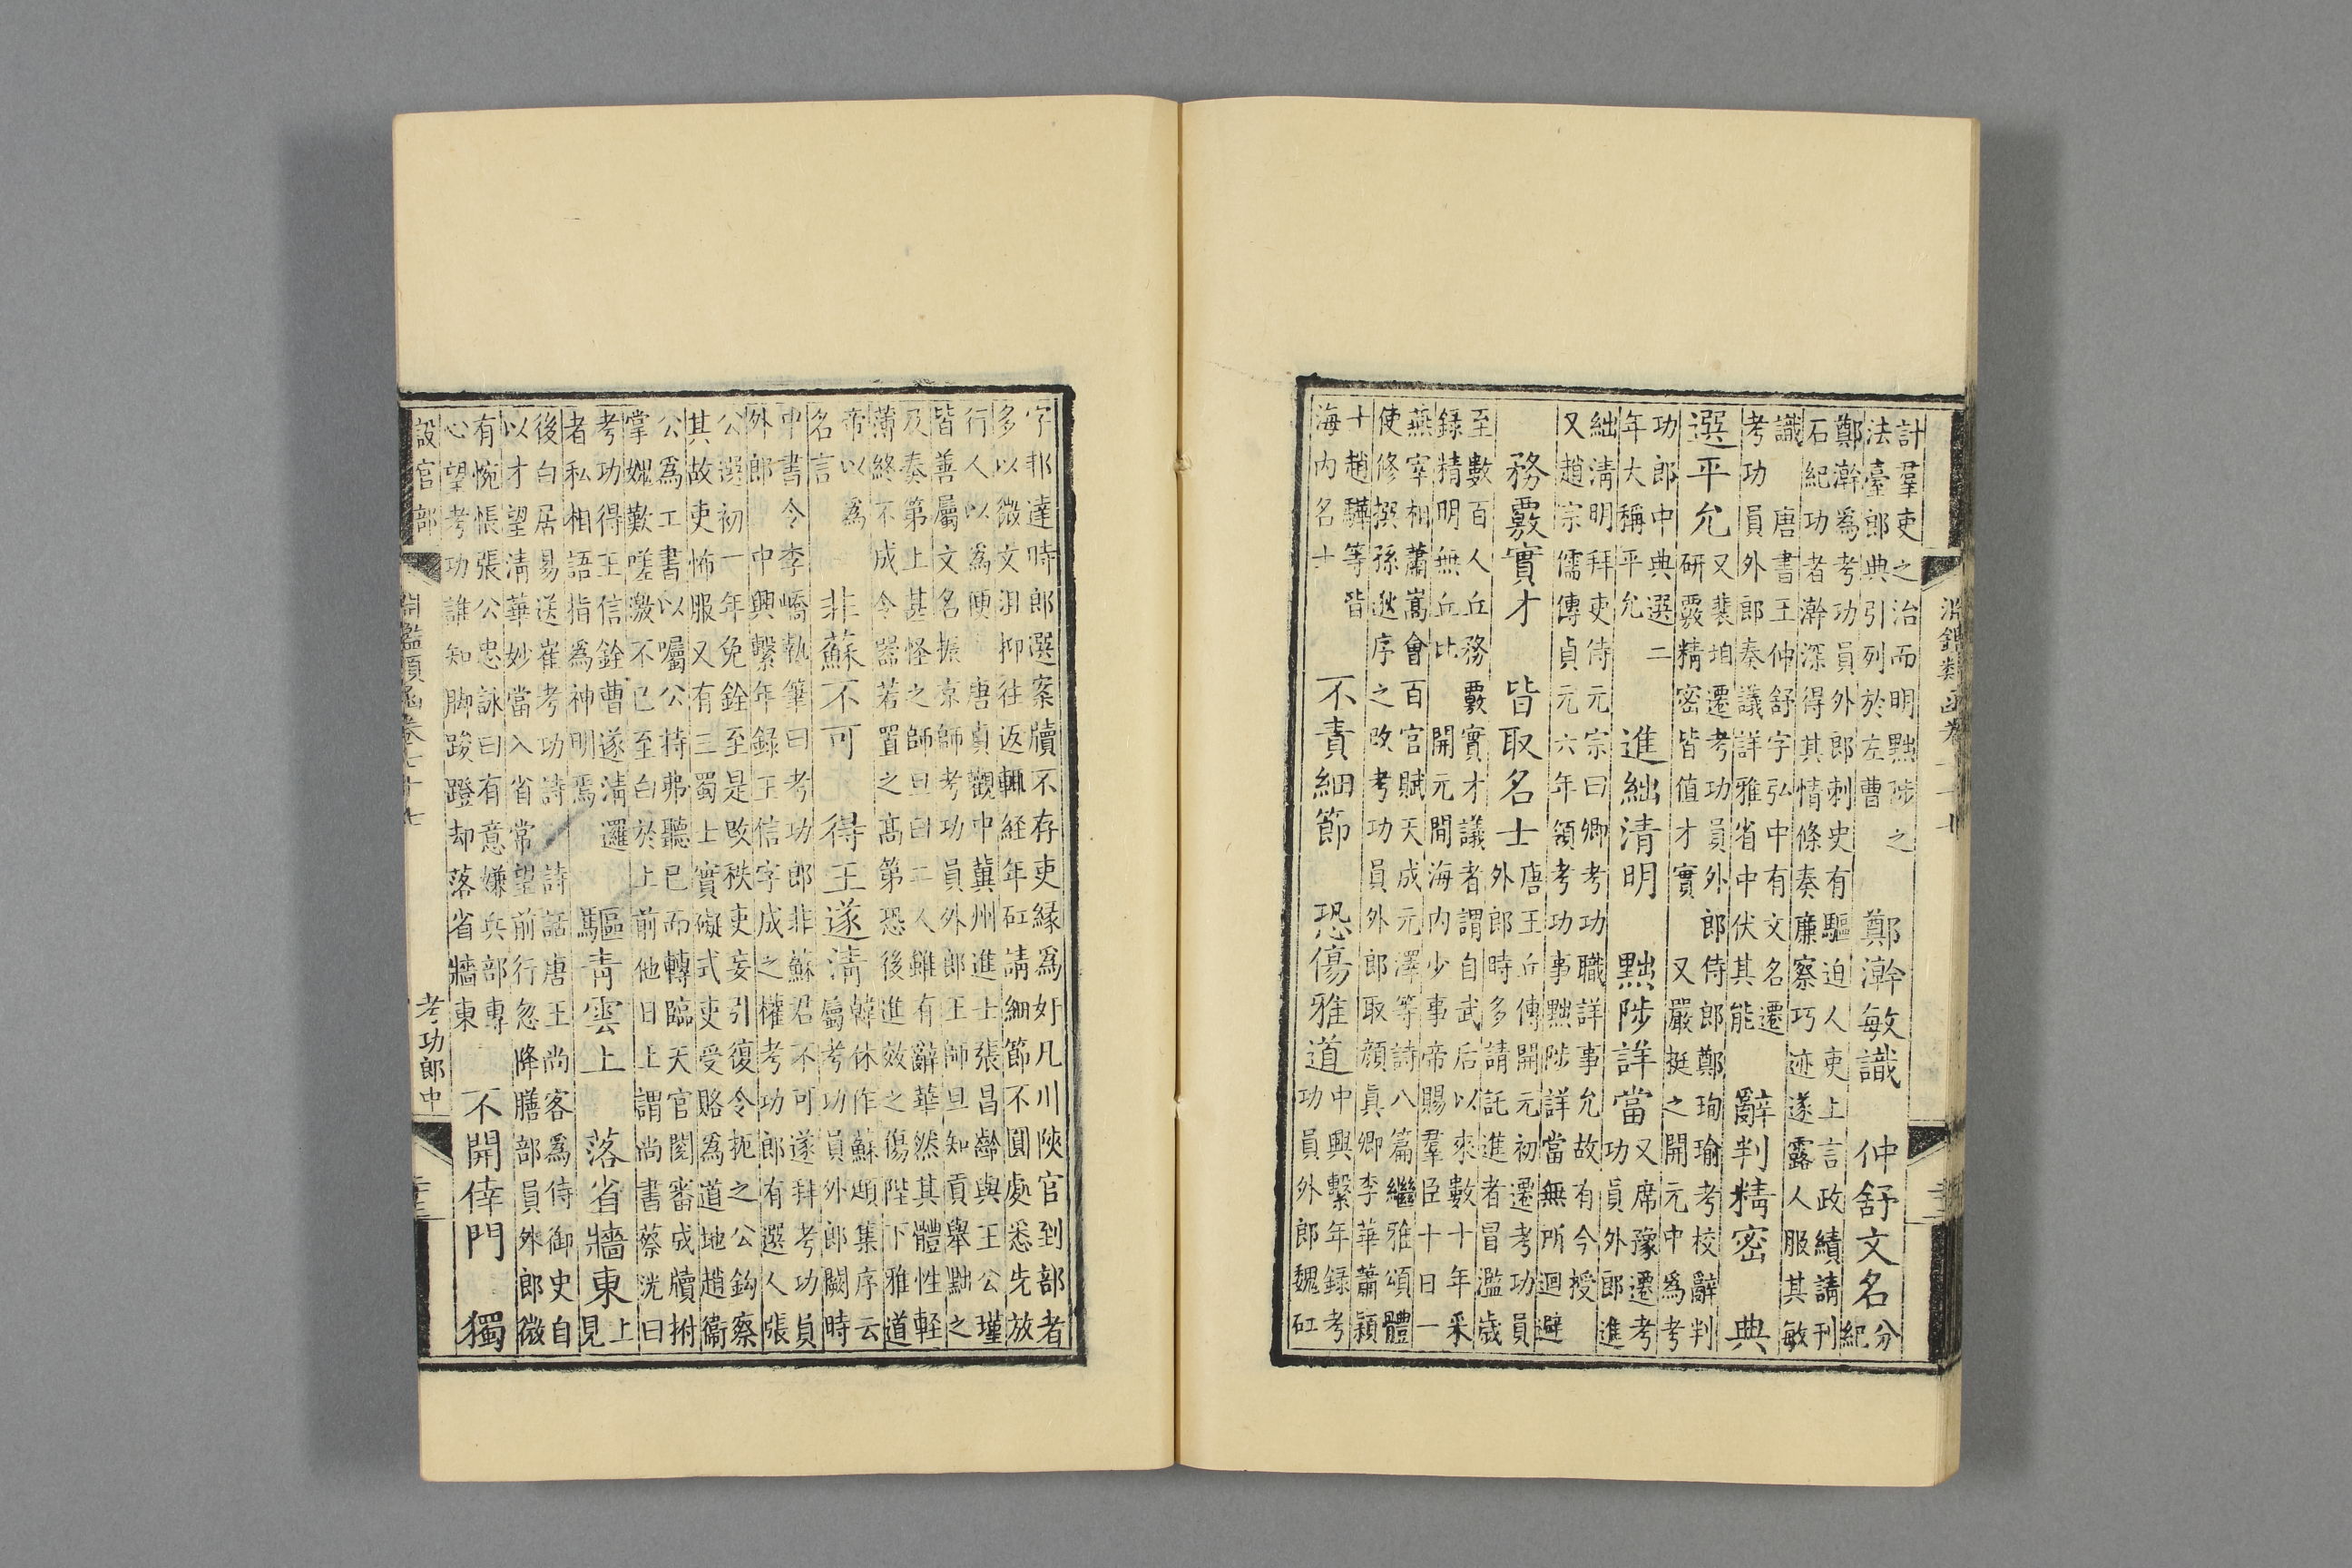 計羣吏之治而明黜陟之
法臺郎典引列於左曹
鄭澣敏識　仲舒文名
分
紀
鄭澣爲考功員外郎刺史有驅迫人吏上言政績請刊
石紀功者澣深得其情條奏廉察巧迹遂露人服其敏
識　唐書王仲舒字弘中有文名遷
考功員外郎奏議詳雅省中伏其能
辭判精密　典
選平允
又裴垍遷考功員外郎侍郎鄭珣瑜考校辭判
研覈精密皆值才實　又嚴挺之開元中爲考
功郎中典選二
年大稱平允
進絀清明　黜陟詳當
又席豫遷考
功員外郎進
絀清明拜吏侍元宗曰卿考功職詳事允故有今授
又趙宗儒傳貞元六年領考功事黜陟詳當無所迴避
務覈實才　皆取名士
唐王丘傳開元初遷考功員
外郎時多請託進者冒濫歲
至數百人丘務覈實才議者謂自武后以來數十年采
録精明無丘比　開元間海内少事帝賜羣臣十日一
燕宰相蕭嵩會百官賦天成元澤等詩八篇繼雅頌體
使修撰孫逖序之改考功員外郎取顔真卿李華蕭穎
十趙驊等皆
海内名士
不責細節　恐傷雅道
中興繫年録考
功員外郎魏矼
字邦達時郎選案牘不存吏緣爲奸凡川陝官到部者
多以微文沮抑往返輙経年矼請細節不圓處悉先放
行人以爲便　唐貞觀中冀州進士張昌齡與王公瑾
皆善屬文名振京師考功員外郎王師旦知貢舉黜之
及奏第上甚怪之師旦曰二人雖有辭華然其體性軽
薄終不成令器若置之高第恐後進效之傷陛下雅道
帝以爲
名言
非蘇不可　得王遂清
韓休作蘇頲集序云
屬考功員外郎闕時
中書令李嶠執筆曰考功郎非蘇君不可遂拜考功員
外郎　中興繫年録王信字成之權考功郎有選人張
公選初一年免銓至是改秩吏妄引復令扼之公鈎察
其故吏怖服又有三蜀上實礙式吏受賂爲道地趙衛
公爲工書以囑公持弗聽已而轉臨天官閲審成牘拊
掌媿歎嗟激不已至白於上前他日上謂尚書蔡洸曰
考功得王信銓曹遂清邏
者私相語指爲神明焉
驅青雲上　落省牆東
上
見
後白居易送崔考功詩　詩話唐王尚客爲侍御史自
以才望清華妙當入省常望前行忽降膳部員外郎微
有惋悵張公忠詠曰有意嫌兵部專
心望考功誰知脚踜蹬却落省牆東
不開倖門　獨
設官部
考功郎中